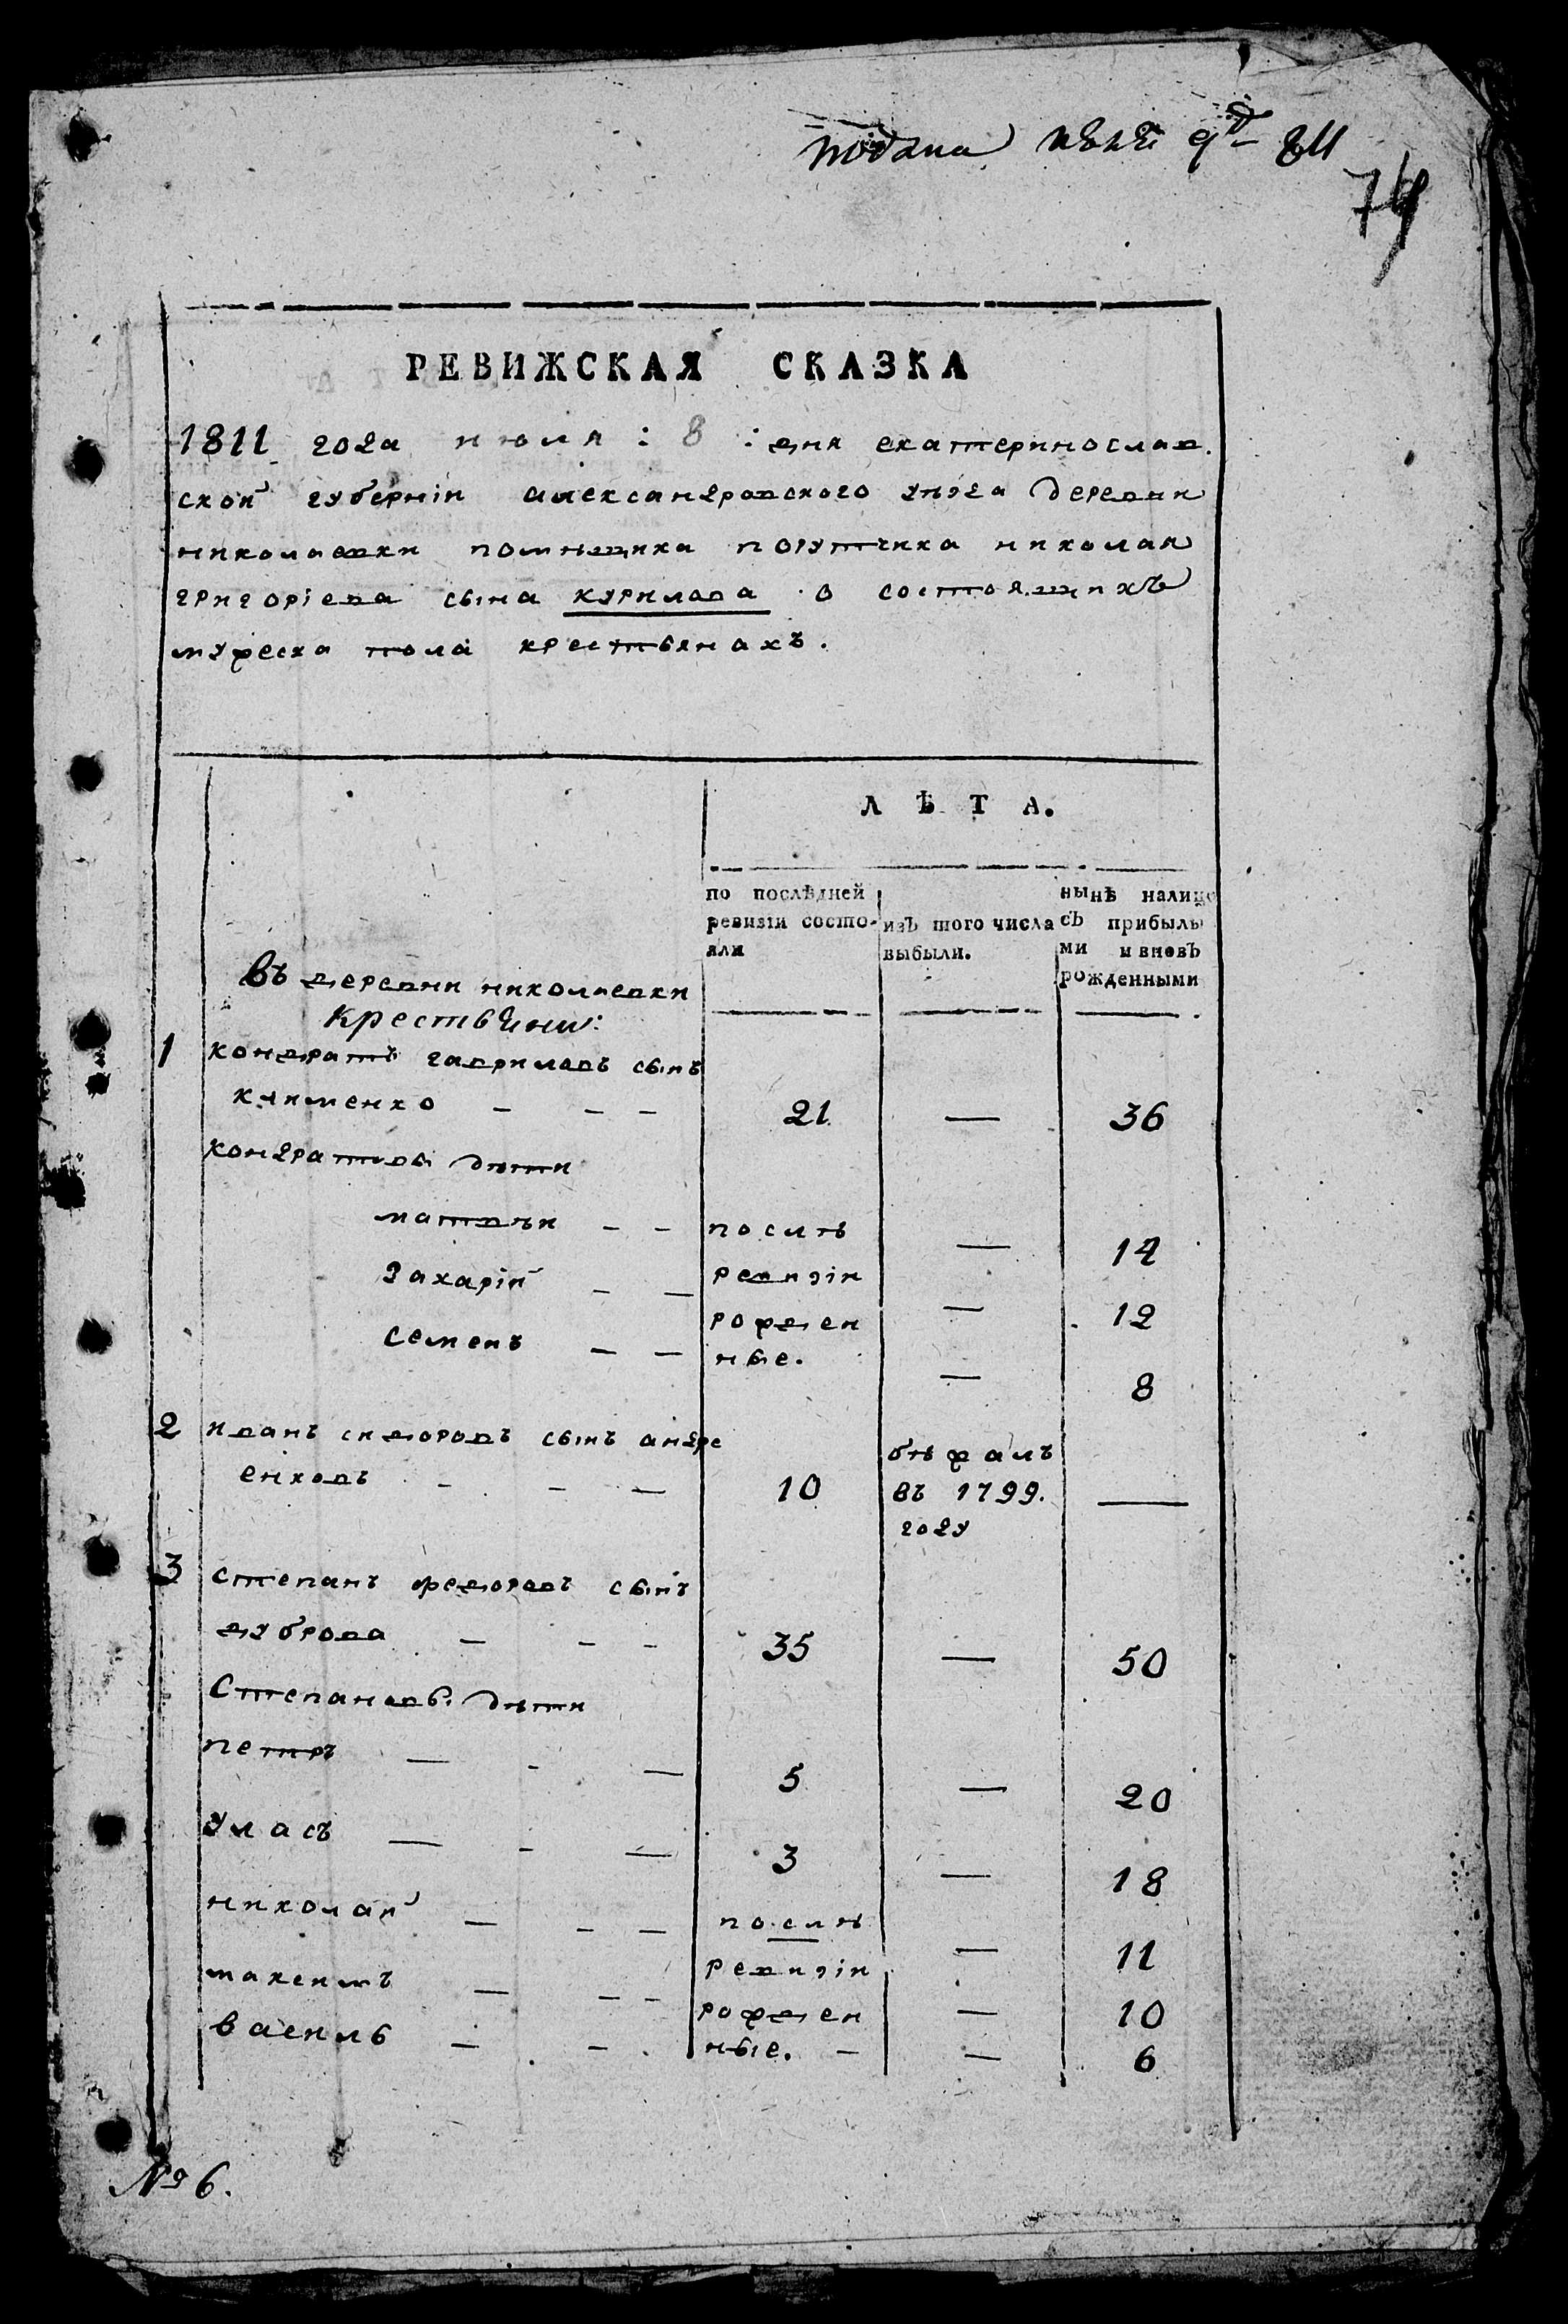 подана
РЕВИЖСКАЯ СКАЗКА
1811 года июля : 8 : дня екатеринослав.
ской губернiи александровского уѣзда деревни
николаевки помѣщика порутчика николая
григорiева сына курилова о состоящихъ
мужеска пола крестьянахъ.
ЛѢТА.
по послѣдней ревизiи состояли
изъ того числа выбыли.
нынѣ налицо съ прибылыми и вновь рожденными
Въ деревни николаевки
Крестьяни:
1 кондратъ гавриловъ сынъ
клименко — — — 21 — 36
кондратовы дѣти
матвѣй — — послѣ — 14
Захарiй — — ревизiи — 12
семенъ — — рожден
ные. — 8
2 иванъ сидоровъ сынъ андре
енковъ — — — 10 бѣжалъ въ 1799. году —
3 степанъ федоровъ сынъ
дуброва — — — 35 — 50
Степановы дѣти
петръ — - — 5 — 20
уласъ — - — 3 — 18
николай — - — послѣ — 11
максимъ — - - ревизiи рожден — 10
василь — - ные. — — 6
№ 6.